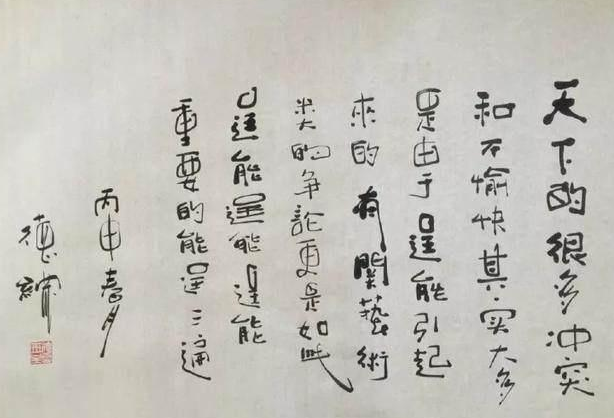 天下的很多冲突
和不愉快其实大多
是由于逞能引起
來的有關藝術
类的争論更是如此
逞能逞能逞能
重要的能逞三遍
丙申春
德